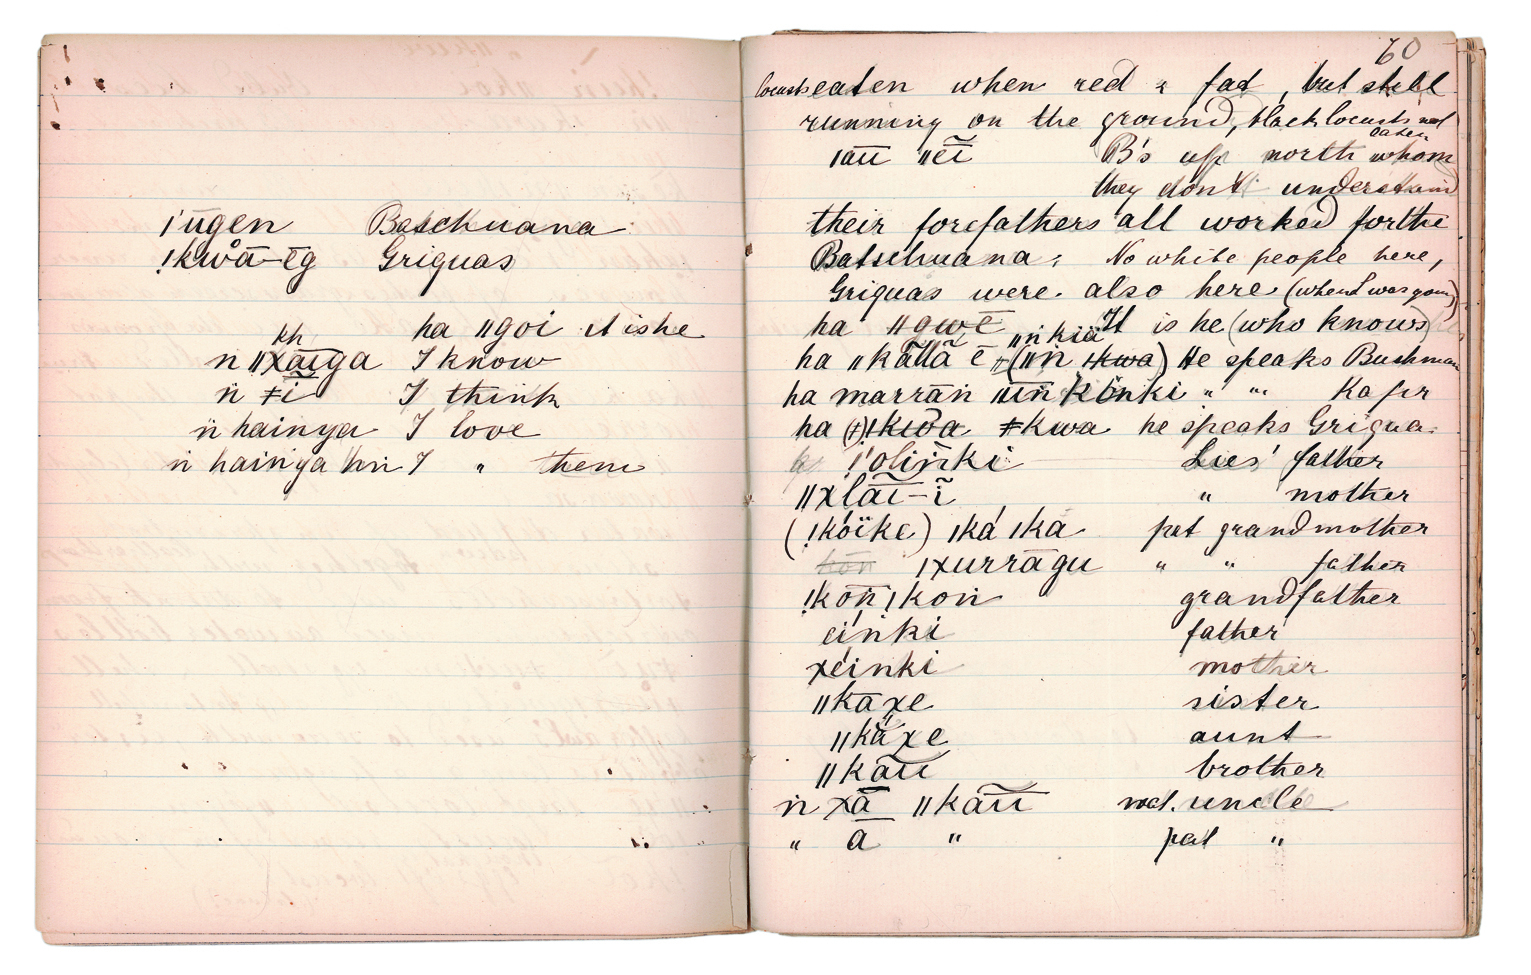 ǀ'ūgen Batschuana
ǃkwå̄-ēg Griquas
ha ǁgoi it is he
kh
n ǁxāīga I know
ṅ ǂĩ I think
ṅ hainya I love
ṅ hainya hn I " them
60
locusts eaten when red & fat, but still
running on the ground, black locusts not
eaten
ǀāū ǁēĩ B's up north whom
they don't understand
their forefathers all worked for the
Batschuana; No white people here,
Griquas were also here (when I was young)
ha ǁgwē It is he (who knows)
ǁṅ kiä
ha ǁkāllā ē ǂ(ǁṅ ǀkwa) He speaks Bushman
ha marrān ǁūn kōnki " " Kafir
ha (ǂ)ǃkwā ǂkwa he speaks Griqua
ǃ'oliñki Lies' father
ǁxlāĩ-ĩ " mother
(ǃkóïke) ǀká ǀka pat grandmother
kōn ǀxurrāgu " " father
ǃkōñ ǃkoṅ grandfather
eíṅki father
xéinki mother
ǁkāxe sister
ǁkäxe aunt
ǁkāũ brother
ṅ xā ǁkāũ mat. uncle
" ā " pat "